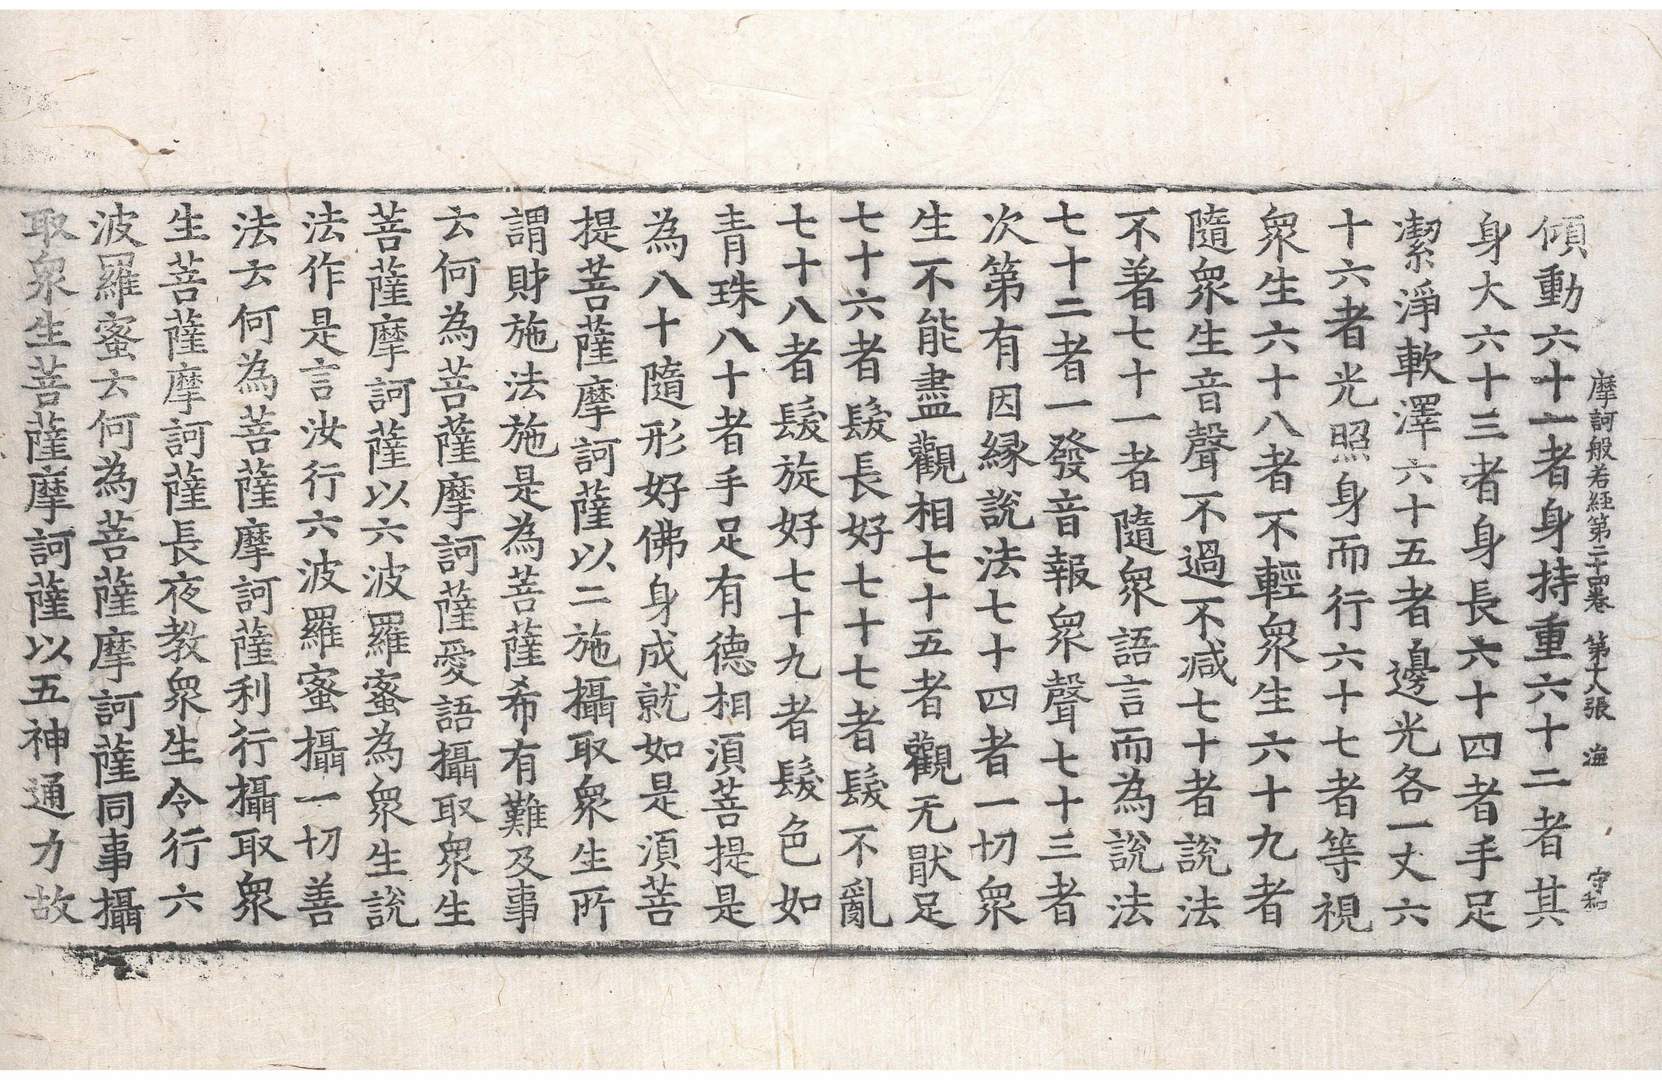 摩訶般若經第二十四卷 第十八張 海 守和
傾動六十一者身持重六十二者其
身大六十三者身長六十四者手足
潔淨軟澤六十五者邊光各一丈六
十六者光照身而行六十七者等視
衆生六十八者不輕衆生六十九者
隨衆生音聲不過不減七十者說法
不著七十一者隨衆語言而為說法
七十二者一發音報衆聲七十三者
次第有因緣說法七十四者一切衆
生不能盡觀相七十五者觀无猒足
七十六者髮長好七十七者髮不亂
七十八者髮旋好七十九者髮色如
青珠八十者手足有德相須菩提是
為八十隨形好佛身成就如是須菩
提菩薩摩訶薩以二施攝取衆生所
謂財施法施是為菩薩希有難及事
云何為菩薩摩訶薩愛語攝取衆生
菩薩摩訶薩以六波羅蜜為衆生說
法作是言汝行六波羅蜜攝一切善
法云何為菩薩摩訶薩利行攝取衆
生菩薩摩訶薩長夜教衆生令行六
波羅蜜云何為菩薩摩訶薩同事攝
取衆生菩薩摩訶薩以五神通力故